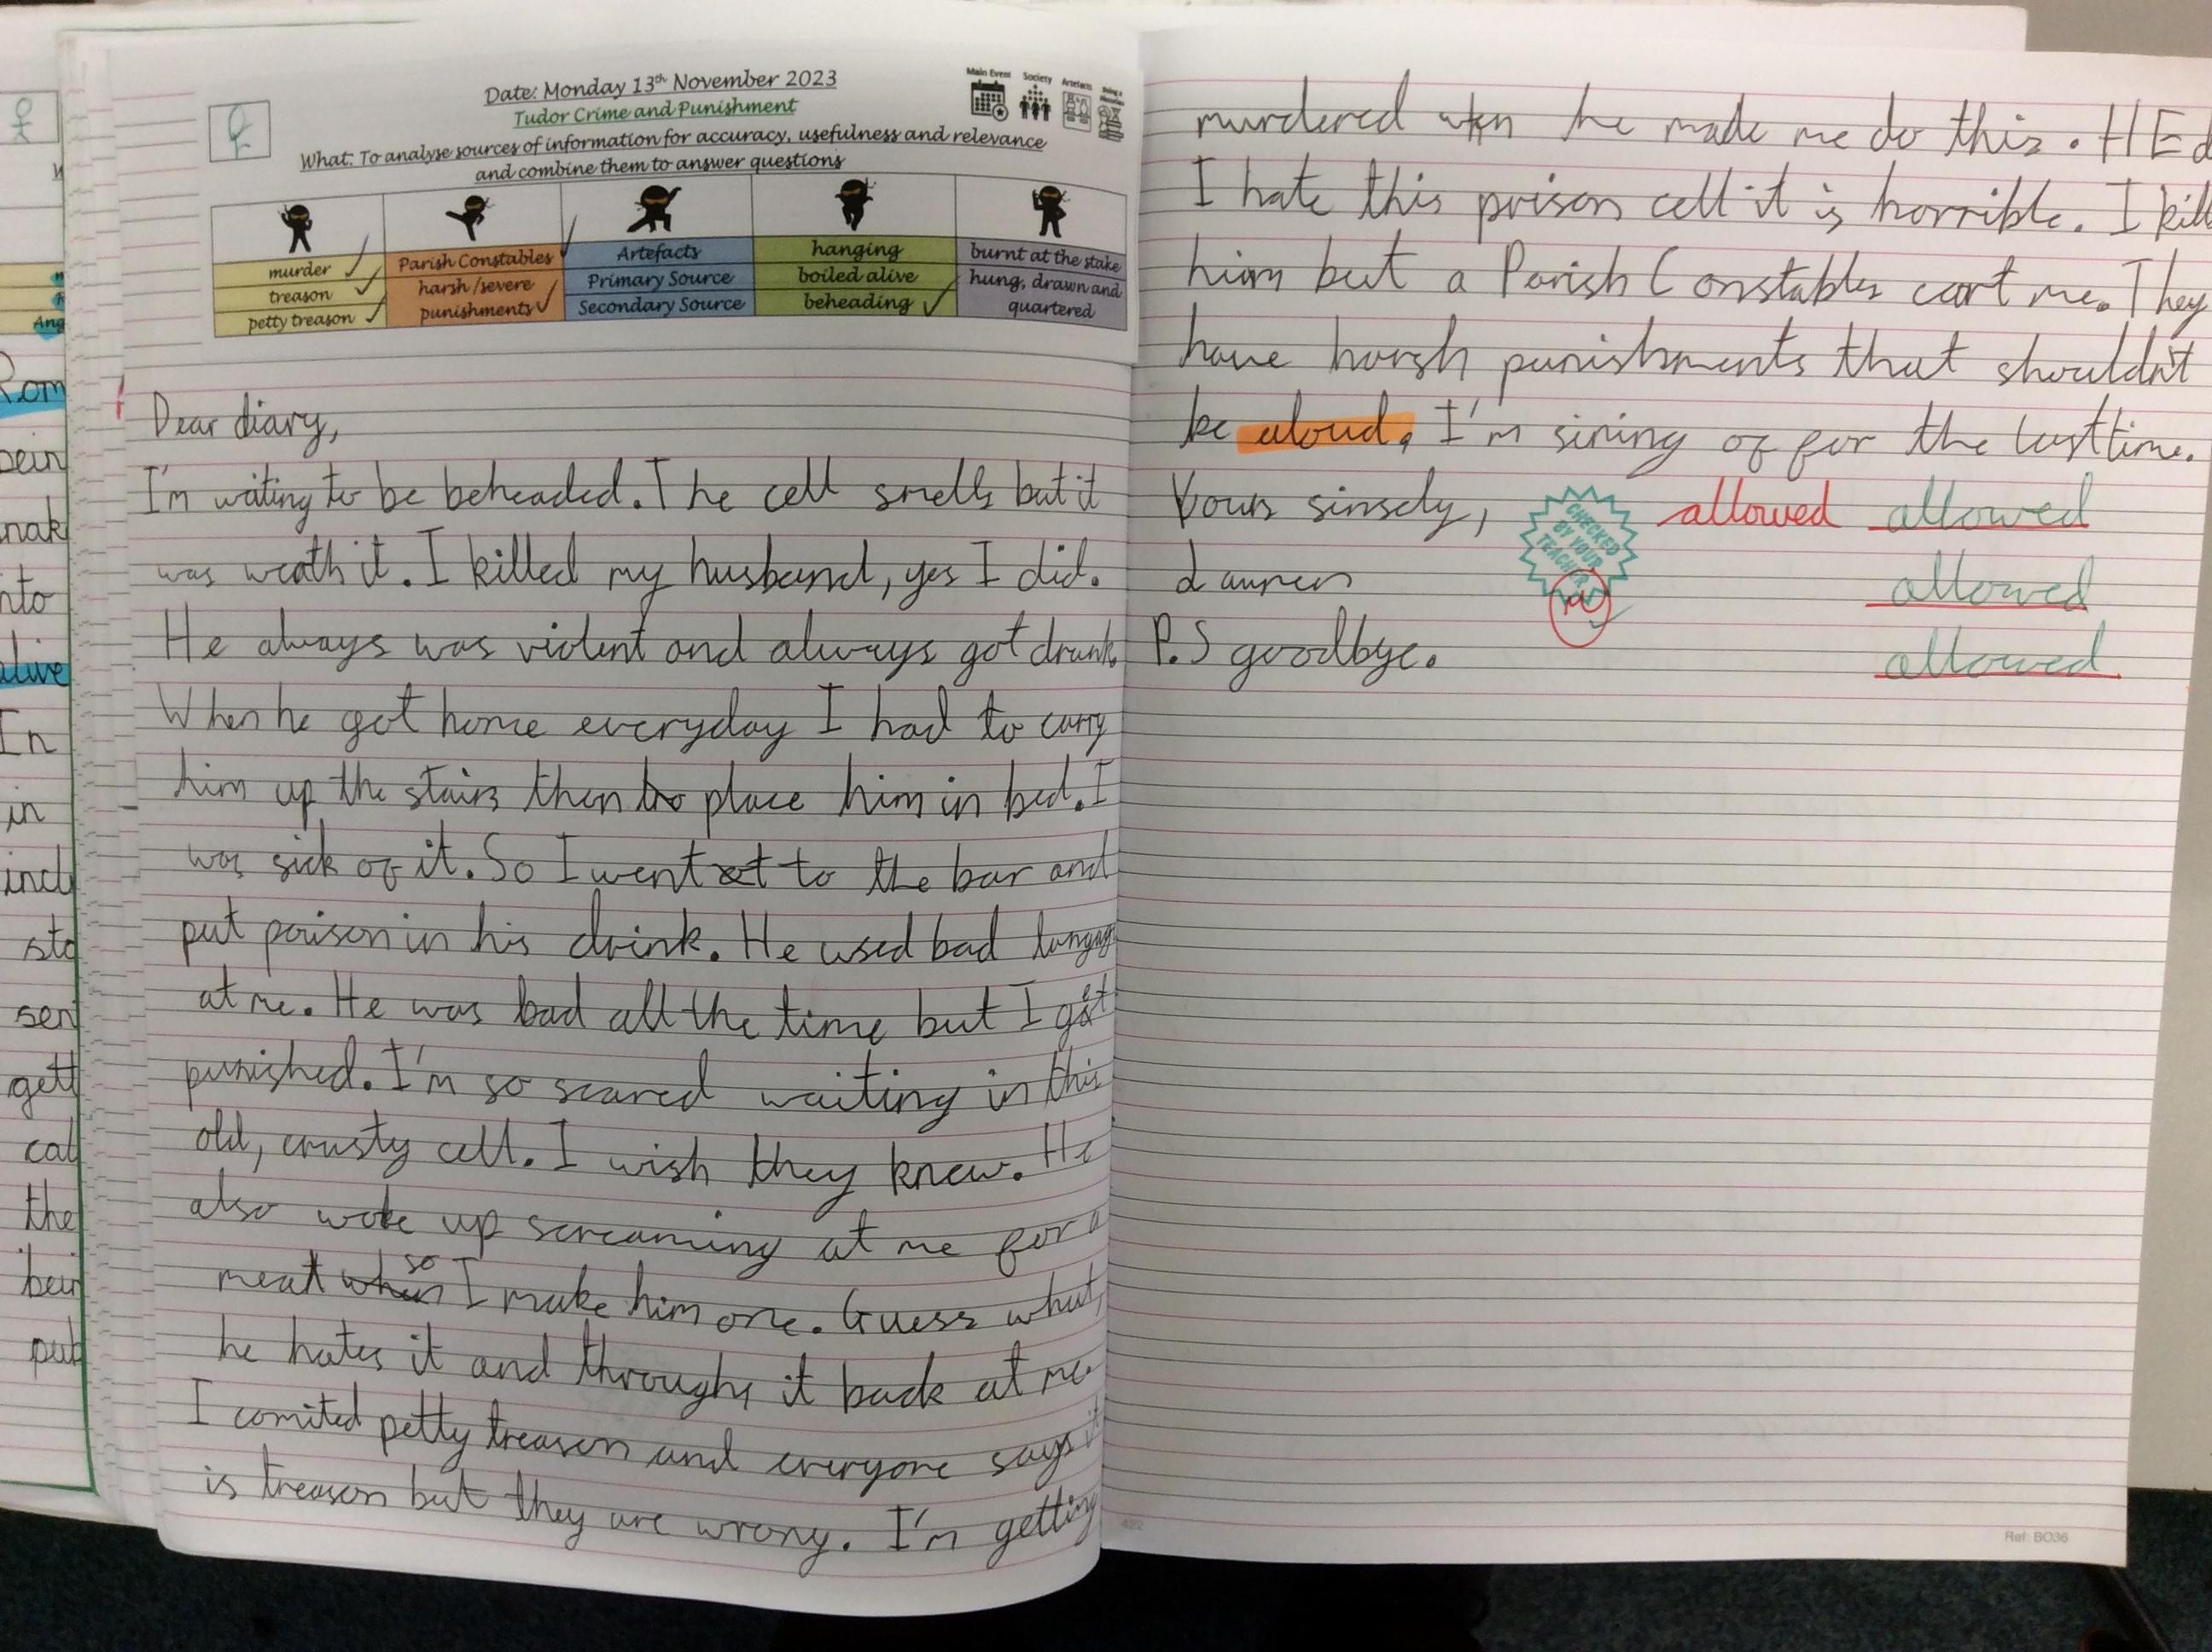 Rom
bein
nak
nto
alive
In
in
incl
sto
sen
gett
cal
the
bein
put
Ang
Date: Monday 13th November 2023
Tudor Crime and Punishment
What: To analyse sources of information for accuracy, usefulness and relevance
and combine them to answer questions
Main Event
Society
Artefacts
murder
treason
petty treason
Parish Constables
harsh/severe
punishments
Artefacts
Primary Source
Secondary Source
hanging
boiled alive
beheading
burnt at the stake
hung, drawn and
quartered
Dear diary,
I'm waiting to be beheaded. The cell smells but it
was woath it. I killed my husband, yes I did.
He always was violent and always got drunk.
When he got home everyday I had to carry
him up the stairs then to place him in bed. I
was sick of it. So I went to the bar and
put poison in his drink. He used bad
at me. He was bad all the time but I get
punished. I'm so scared waiting in this
old, crusty cell. I wish they knew. He
also woke up screaming at me for a
meat when so I make him one. Guess what,
he hates it and throughs it back at me.
I comited petty treason and everyone says it
is treason but they are wrong. I'm getting
murdered when he made me do this. HE d
I hate this prison cell it is horrible. I kill
him but a Parish Constables cort me. They
have harsh punishments that shouldn't
be aloud. I'm sining of for the last time.
Yours sinsely,
Lauren
P.S goodbye.
CHECKED
BY YOUR
TEACHER
allowed allowed
allowed
allowed
Ref: BO36